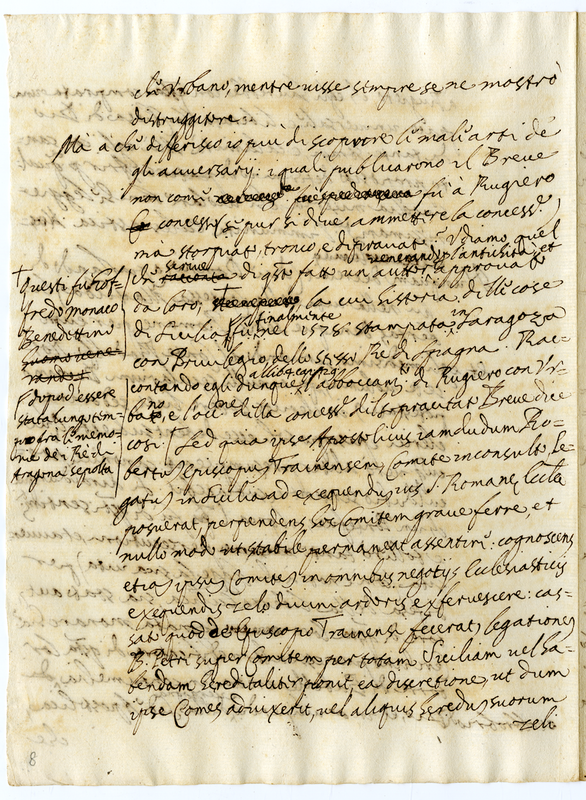 che Urbano, mentre visse sempre se ne mostrò
distruggitore.
Mà a che differisco io più di scoprore le mali arti de
gli avversarij: i quali publicarono il Breve
non come fù à Rugiero
concesso (se pur si deve ammettere la concess.e)
mà storpiato, tronco, e depravato? Udiamo quel
che scrive di q.sto fatto un autor venerando p l'antichità, et approvato
da loro, † la cui historia delle cose
di Sicilia fù finalmente nel 1578. stampata in Saragozza
con Privilegio dello stesso Rè di Spagna. Rac-
contando egli dunque l'abboccam.to di Rugiero con Ur-
bano, e l'occ.ne della concess.e del sopracitato Breve dice
così: Sed quia ipse Apostolicus iamdudum Ro-
bertum Episcopum Trainensem, Comite inconsulto, le-
gatum in Sicilia ad exequendum ius S. Romanę Ecclę
posuerat, perpendens hoc Comitem grave ferre, et
nullo modo ut stabile permaneat assentiri: cognoscens
etiam ipsum Comitem in omnibus negotijs Ecclesiasticis
exequendis zelo divini ardoris exfervescere: cas-
sato quod de Episcopo Trainensi fecerat, legationem
B. Petri super Comitem per totam Siciliam vel ha-
bendam hereditaliter ponit, ea discretione, ut dum
ipse Comes advixerit, vel aliquis heredum suorum
zeli
† Questi fu Gof-
fredo monaco
Benedettino
dopo d'essere
stata lungo tem-
po frà le memo-
rie de i Rè di
Aragona sepolta
8